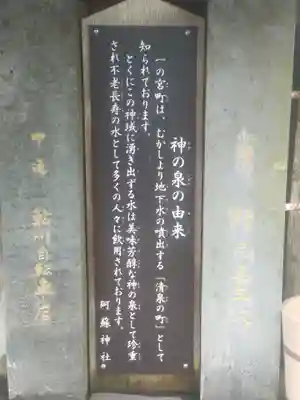 神の泉の由来
一の宮町は、むかしより地下水の噴出する「清泉の町」として
知られております。
とくにこの神域に湧き出する水は美味芳醇な神の泉として珍重
され不老長寿の水として多くの人々に飲用されております。
阿蘇神社